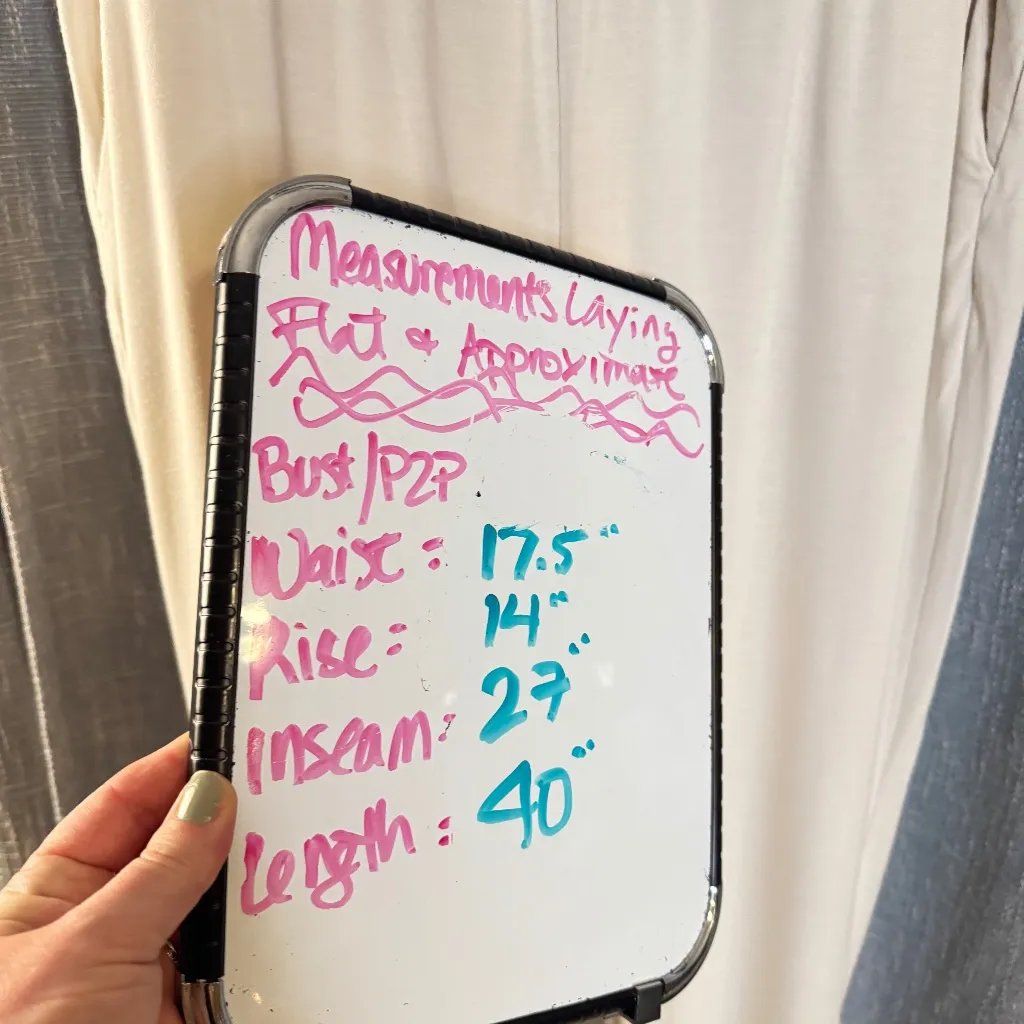 Measurements Laying
Flat & Approximate
Bust/P2P
Waist: 17.5"
Rise: 14"
Inseam: 27"
Length: 40"